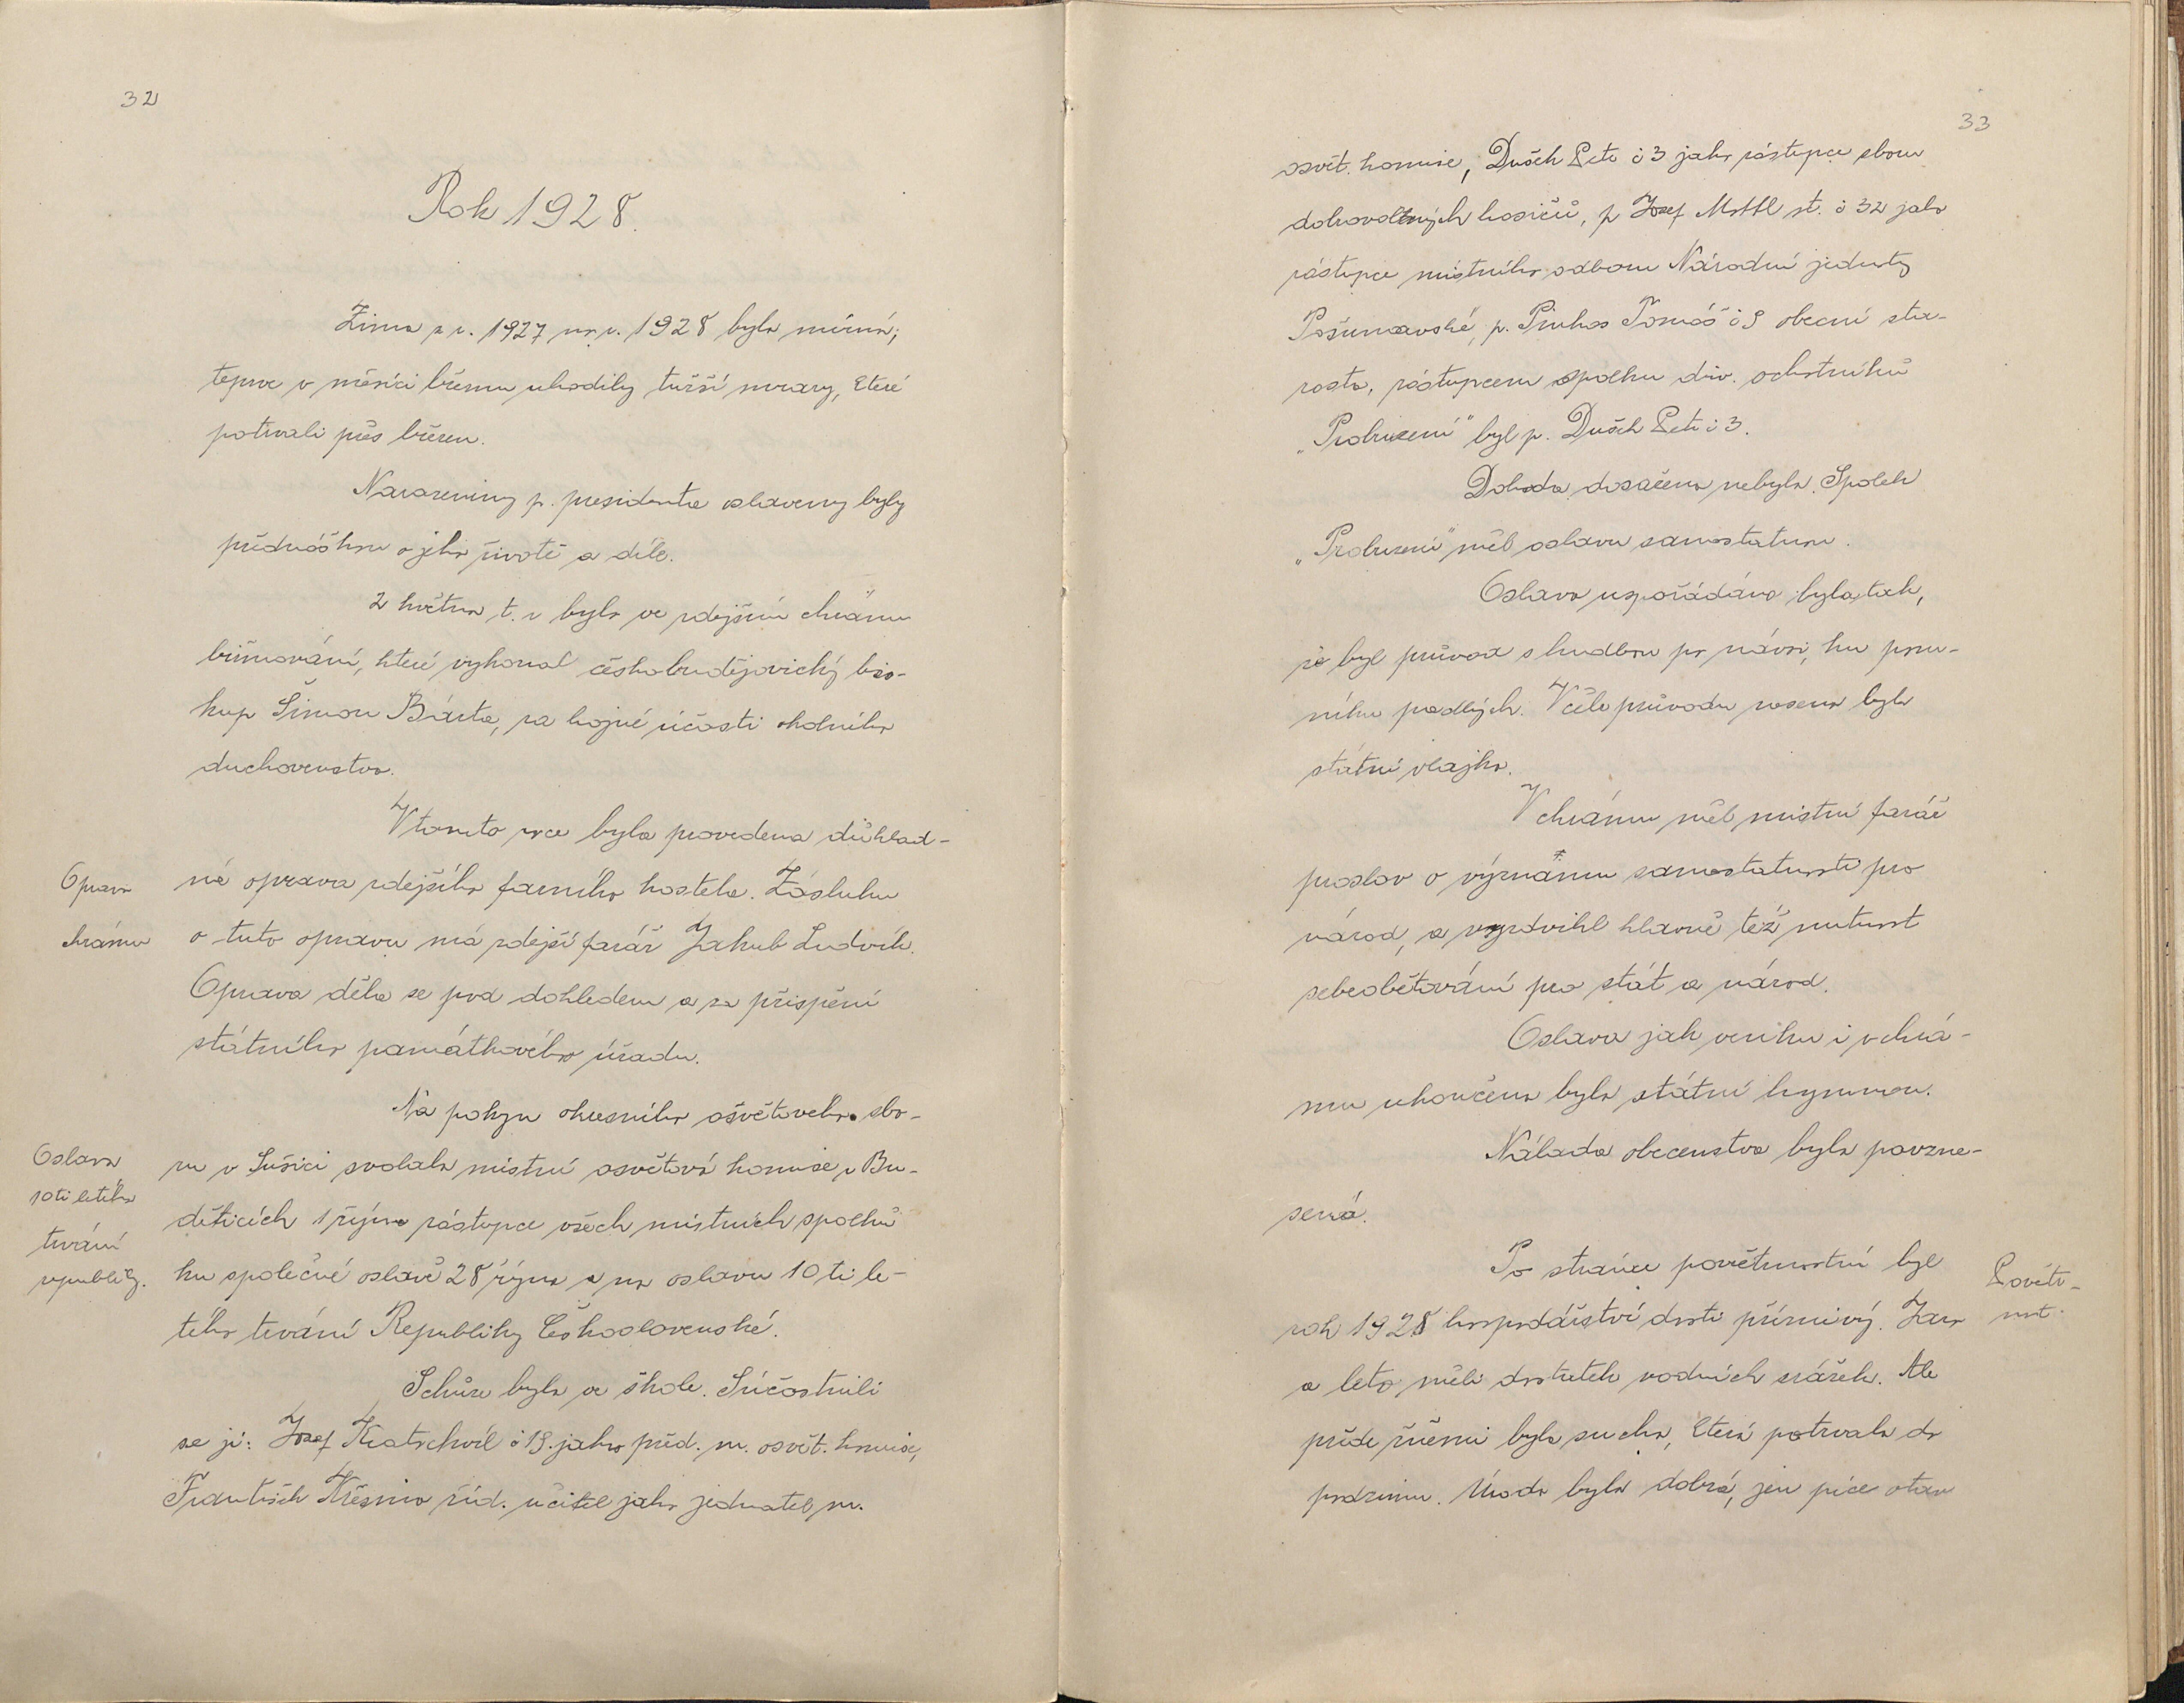 32
Rok 1928.
Zima z r. 1927 na r. 1928 byla mírná;
teprve v měsíci březnu uhodily tužší mrazy, které
potrvali přes březen.
Narozeniny p. presidenta oslaveny byly
přednáškou o jeho životě a díle.
2 května t. r. bylo ve zdejším chrámu
biřmování, které vykonal českobudějovický bis-
kup Šimon Bárta, za hojné účasti okolního
duchovenstva.
V tomto roce byla provedena důklad-
Oprava
ná oprava zdejšího farního kostela. Zásluhu
chrámu
o tuto opravu má zdejší farář Jakub Ludvík.
Oprava děla se pod dohledem a za přispění
státního památkového úřadu.
Na pokyn okresního osvětového sbo-
Oslava
ru v Sušici svolala místní osvětová komise v Bu-
10ti letého
děticích 1 října zástupce všech místních spolků
trvání
republiky.
ku společné oslavě 28 října a na oslavu 10 ti le-
tého trvání Republiky Československé.
Schůze byla ve škole. Súčastnili
se jí: Josef Kratochvíl č 19. jako před. m. osvět. komise,
František Křesina říd. učitel jako jednatel m.
33
osvět. komise, Dušek Petr č 3 jako zástupce sboru
dobrovolných hasičů, p Josef st. č 32 jako
zástupce místního odboru Národní jednoty
Pošumavské, p. Tomáš č 9 obecní sta-
rosta, zástupcem spolku div. ochotníků
„Probuzení" byl p. Dušek Petr č 3.
Dohoda dosažena nebyla. Spolek
„Probuzení" měl oslavu samostatnou.
Oslava uspořádána byla tak,
že byl průvod s hudbou po návsi, ku pom-
níku padlých. V čele průvodu nesena byla
státní vlajka.
V chrámu měl místní farář
proslov o významu samostatnosti pro
národ, a vyzdvihl hlavně též nutnost
sebeobětování pro stát a národ.
Oslava jak venku i v chrá-
mu ukončena byla státní hymnou.
Nálada obecenstva byla povzne-
sená.
Po stránce povětrnostní byl
Povětr-
rok 1928 hospodářství dosti příznivý. Jaro
nost.
a leto měli dostatek vodních srážek. Ale
přede žněmi bylo sucho, které potrvalo do
podzimu. Úroda byla dobrá, jen píce otav